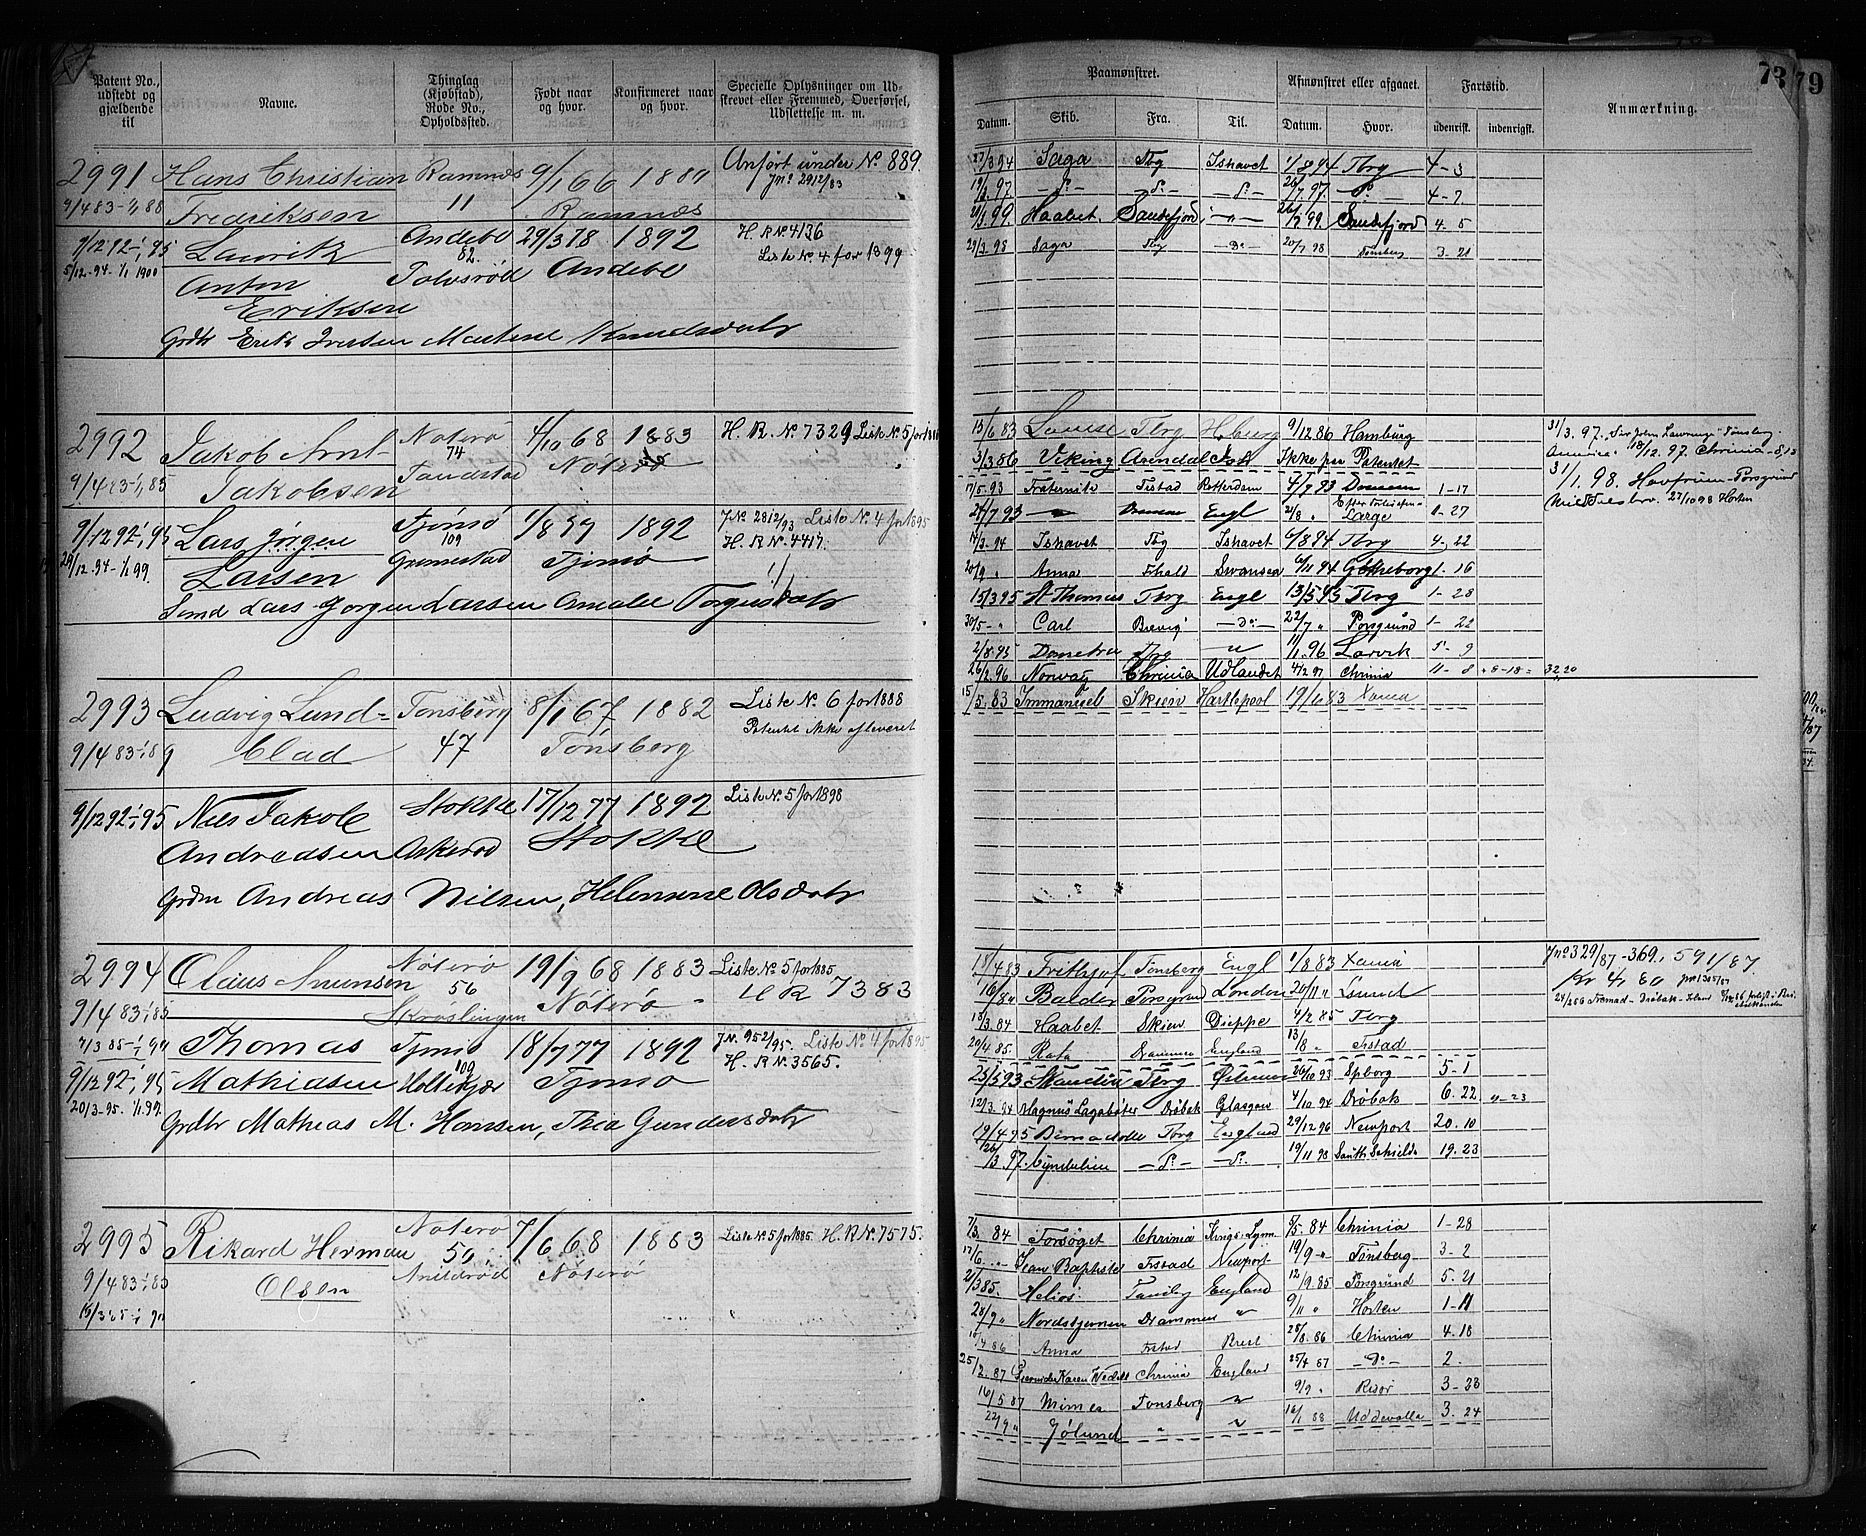 73 79
Patent No., udstedt og gjældende til
Navne.
Thinglag (Kjøbstad), Rode No., Opholdssted.
Født naar og hvor.
Konfirmeret naar og hvor.
Specielle Oplysninger om Udskrevet eller Fremmed, Overførsel, Udslettelse m. m.
Paamønstret.
Datum. Skib. Fra. Til.
Afmønstret eller afgaaet.
Datum. Hvor.
Fartstid.
udenrikst. indenrigst.
Anmærkning.
2991 Hans Christian Ramnes 9/1 66 1880 Anført under No. 889
Jno 2912/83
9/4 83 - 1/1 88 Fredriksen 11 Ramnæs
9/12 92 - 1/1 95 Laurik Andebu 29/3 78 1892 H. R No 4136
82
5/12-94-1/1 1900 Anton Tolvsrød Andebu Liste No 4 for 1899
Eriksen
Grdbr Erik Iversen Martine Knudsdatr
27/3 94 Saga Tbg Ishavet 1/8 94 Tbrg 4-3
19/2 97 - Do - - Do - - Do - 26/7 97 - Do - 4-7
Haabet Sandefjord - " - 99 Sandefjord 4-5
29/3-98 Saga Tbg - Do - 20/7 98 Tønsberg 3-21
2992 Jakob Ant- Nøterø 4/10 68 1883 H. R. No 7329 Liste No 5 for 1886
74
9/4 83 - 1/1 85 Jakobsen Nøterø
9/12 92 - 1/1 95 Lars Jørgen Tjømø 1/8 77 1892 JNo 2812/93 Liste No 4 for 1895
109
29/12-94-1/1 99. Larsen Grimestad Tjømø H. R No 4417
Sømd Lars Jørgen Larsen Amalie Torgersdatr
15/6 83 Louise Tbrg Hburg 9/12 86 Hamburg
3/3 86 Viking Arendal Ish Ikke paa Patentet
17/5-93 Fraternite Frstad Rotterdam 4/7 93 Drammen 1-17
21/7 93 Drammen Engl 2/8 " Large 0-27
14/3-94 Ishavet Tbg Ishavet 6/8 94 Tbrg 4-22
20/9 " Anna Frhald Swansea 6/11 94 Gotheborg 1-16
15/3 95 St Thomas Tbrg Engl 13/5 95 Tbrg 1-28
30/5- " Carl Brevig - Do - 22/7 " Porsgrund 1-22
2/8 95 Tbrg " 11/1 96 Larvik 5-9
26/2 96 Norway Chrinia Udlandet 4/2 97 Chrinia 11-8 + 8-18 = 32,20
31/3. 97. Sir John Lawrence Tønsberg
America 18/12. 97. Chrinia - 8,13
31/1. 98. Havfruen - Porsgrund
27/10 98 Horten
2993 Ludvig Lund- Tønsberg 8/1 67 1882 Liste No 6 for 1888
9/4 83 - 1/1 89 Clad 47 Tønsberg Patentet ikke afleveret
9/12 92 - 1/1 95 Nils Jakob Stokke 17/12 77 1892 Liste No 5 for 1898
Andreasen Askerød Stokke
Grdm Andreas Nilsen, Helemine Olsdatr
15/5. 83 Immanuel Skien Hartlepool 19/6 83 Xania
2994 Claus Amunsen Nøterø 19/9 68 1883 Liste No 5 for 1885
56
9/4 83 - 1/1 85 Skrøslingen Nøterø H R 7383
7/3 85 - 1/1 90 Thomas Tjømø 18/7 77 1892 JNo 952/95. Liste No 4 for 1895
109
9/12 92 - 1/1 95 Mathiasen Holtekjær Tjømø H. R No. 3565.
20/3-95. 1/1 97.
Grdbr Mathias M. Hansen, Thea Gundersdatr
18/4 83 Frithjof Tønsberg Engl 1/8 83 Xania
16/8 " Balder Porsgrund London 20/11 "
18/3. 84 Haabet Skien Dieppe 4/2 85 Tbrg
20/4 85. Rota Drammen England 13/8 " Frstad
25/5 93 Tbrg 26/10 93 Spborg 5-1
12/3. 94 Magnus Lagabøter Drøbak Glasgow 4/10 94 Drøbak 6. 22 " - 23
19/4 95 Bernadotte Tbrg England 29/12 96 Newport 20. 10
26/3. 97. - Do - - Do - 19/11 98 South Schields 19. 23
Jno 329/87 - 369., 591/87.
Kr 4, 80
2995 Rikard Herman Nøterø 7/6 68 1883 Liste No 5 for 1885. H. R No. 7575.
50
9/4 83 - 1/1 85 Olsen Arildsrød Nøterø
7/3. 84 Forsøget Chrinia Kings-Lynn 5/5. 84 Chrinia 1-28
17/6. - " Jean Baptiste Frstad Newport 19/9 - " Tønsberg 3-2
2/3 85. Helios. England 12/9. 85 Porsgrund 5. 21
28/9 " Nordstjernen Drammen " 9/11 " Horten 1-11
Anna Frstad Brest 28/8. 86 Chrinia 4. 18
25/2. 87 Karen Wedell Chrinia England 25/4 87 - Do - 2.
16/5 87 Mimer Tønsberg " 9/9 " Risør 3-23
22/9 " Jølund " " 16/1 88 Uddevalla 3. 24